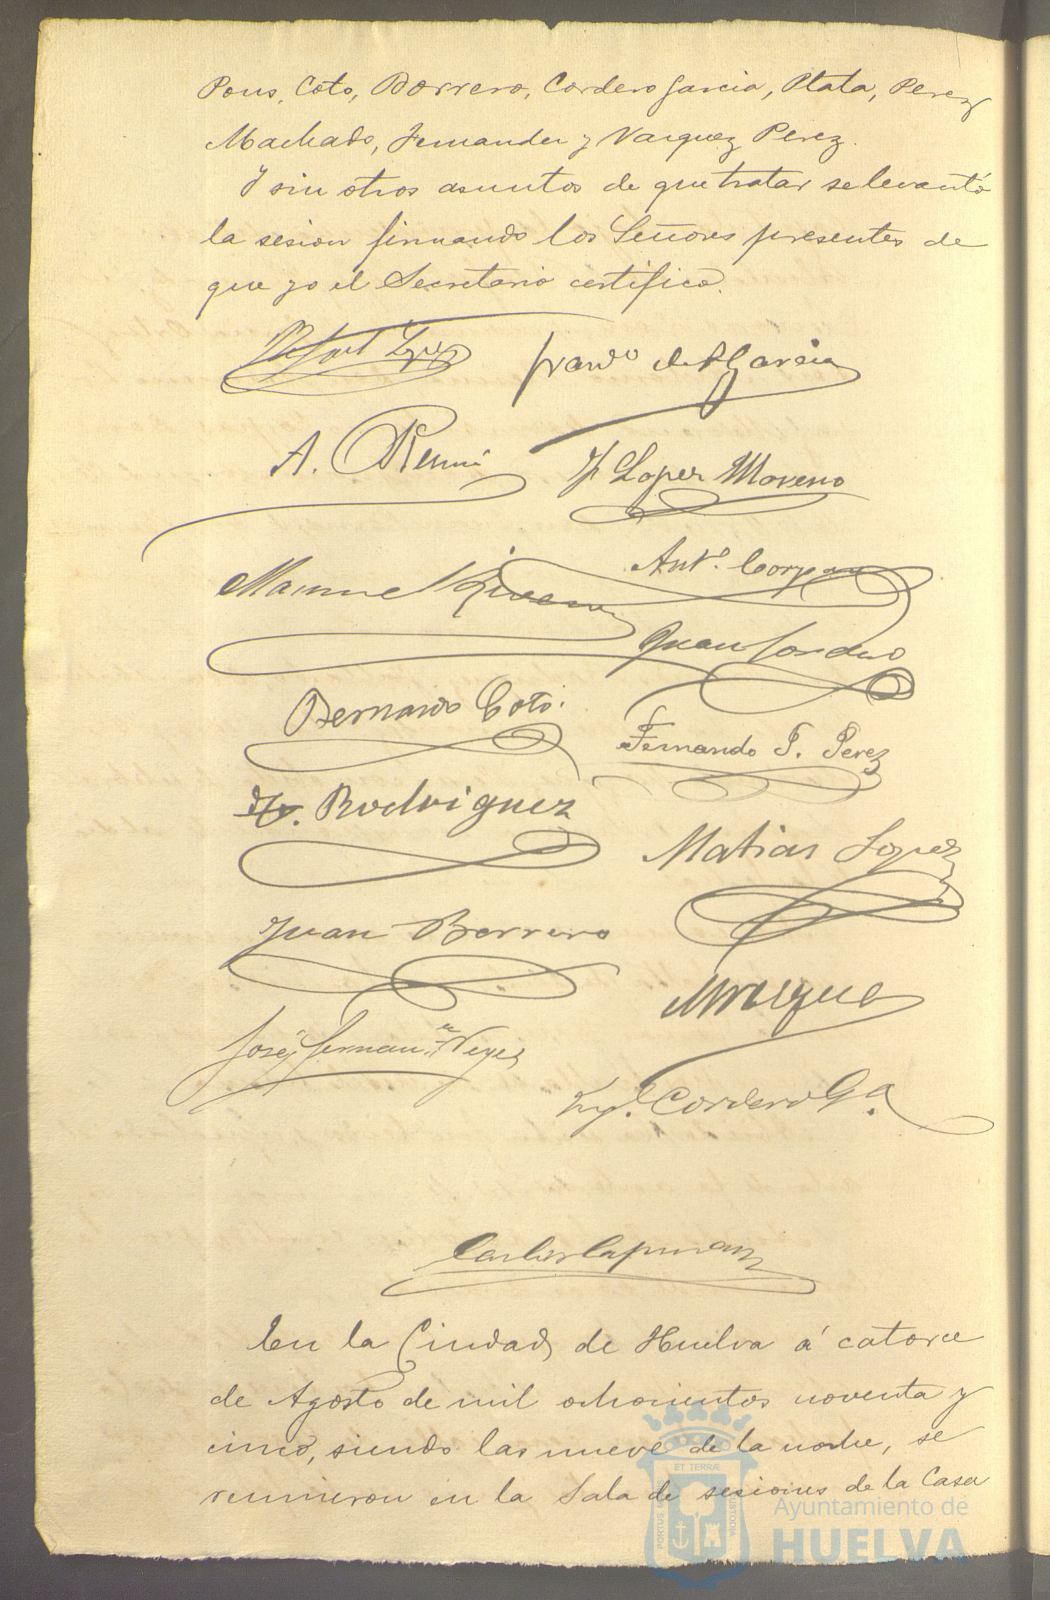 Pons, Coto, Borrero, Cordero Garcia, Plata, Perez
Machado, Fernandez y Vazquez Perez.
Y sin otros asuntos de que tratar se levantó
la sesion firmando los Señores presentes de
que yo el Secretario certifico.
Rafael Lopez
de la Garcia
A.
F Lopez Moreno
Antº.
Manuel
Juan Cordero
Bernardo Coto.
Fernando P. Perez
Rodriguez
Matias Lopez
Juan Borrero
José Fernanᵈᵉᶻ
Cordero Gª.
Carlos
En la Ciudad de Huelva á catorce
de Agosto de mil ochocientos noventa y
cinco, siendo las nueve de la noche, se
reunieron en la Sala de sesiones de la Casa
ET TERRÆ
PORTUS
CUSTODIA
Ayuntamiento de
HUELVA